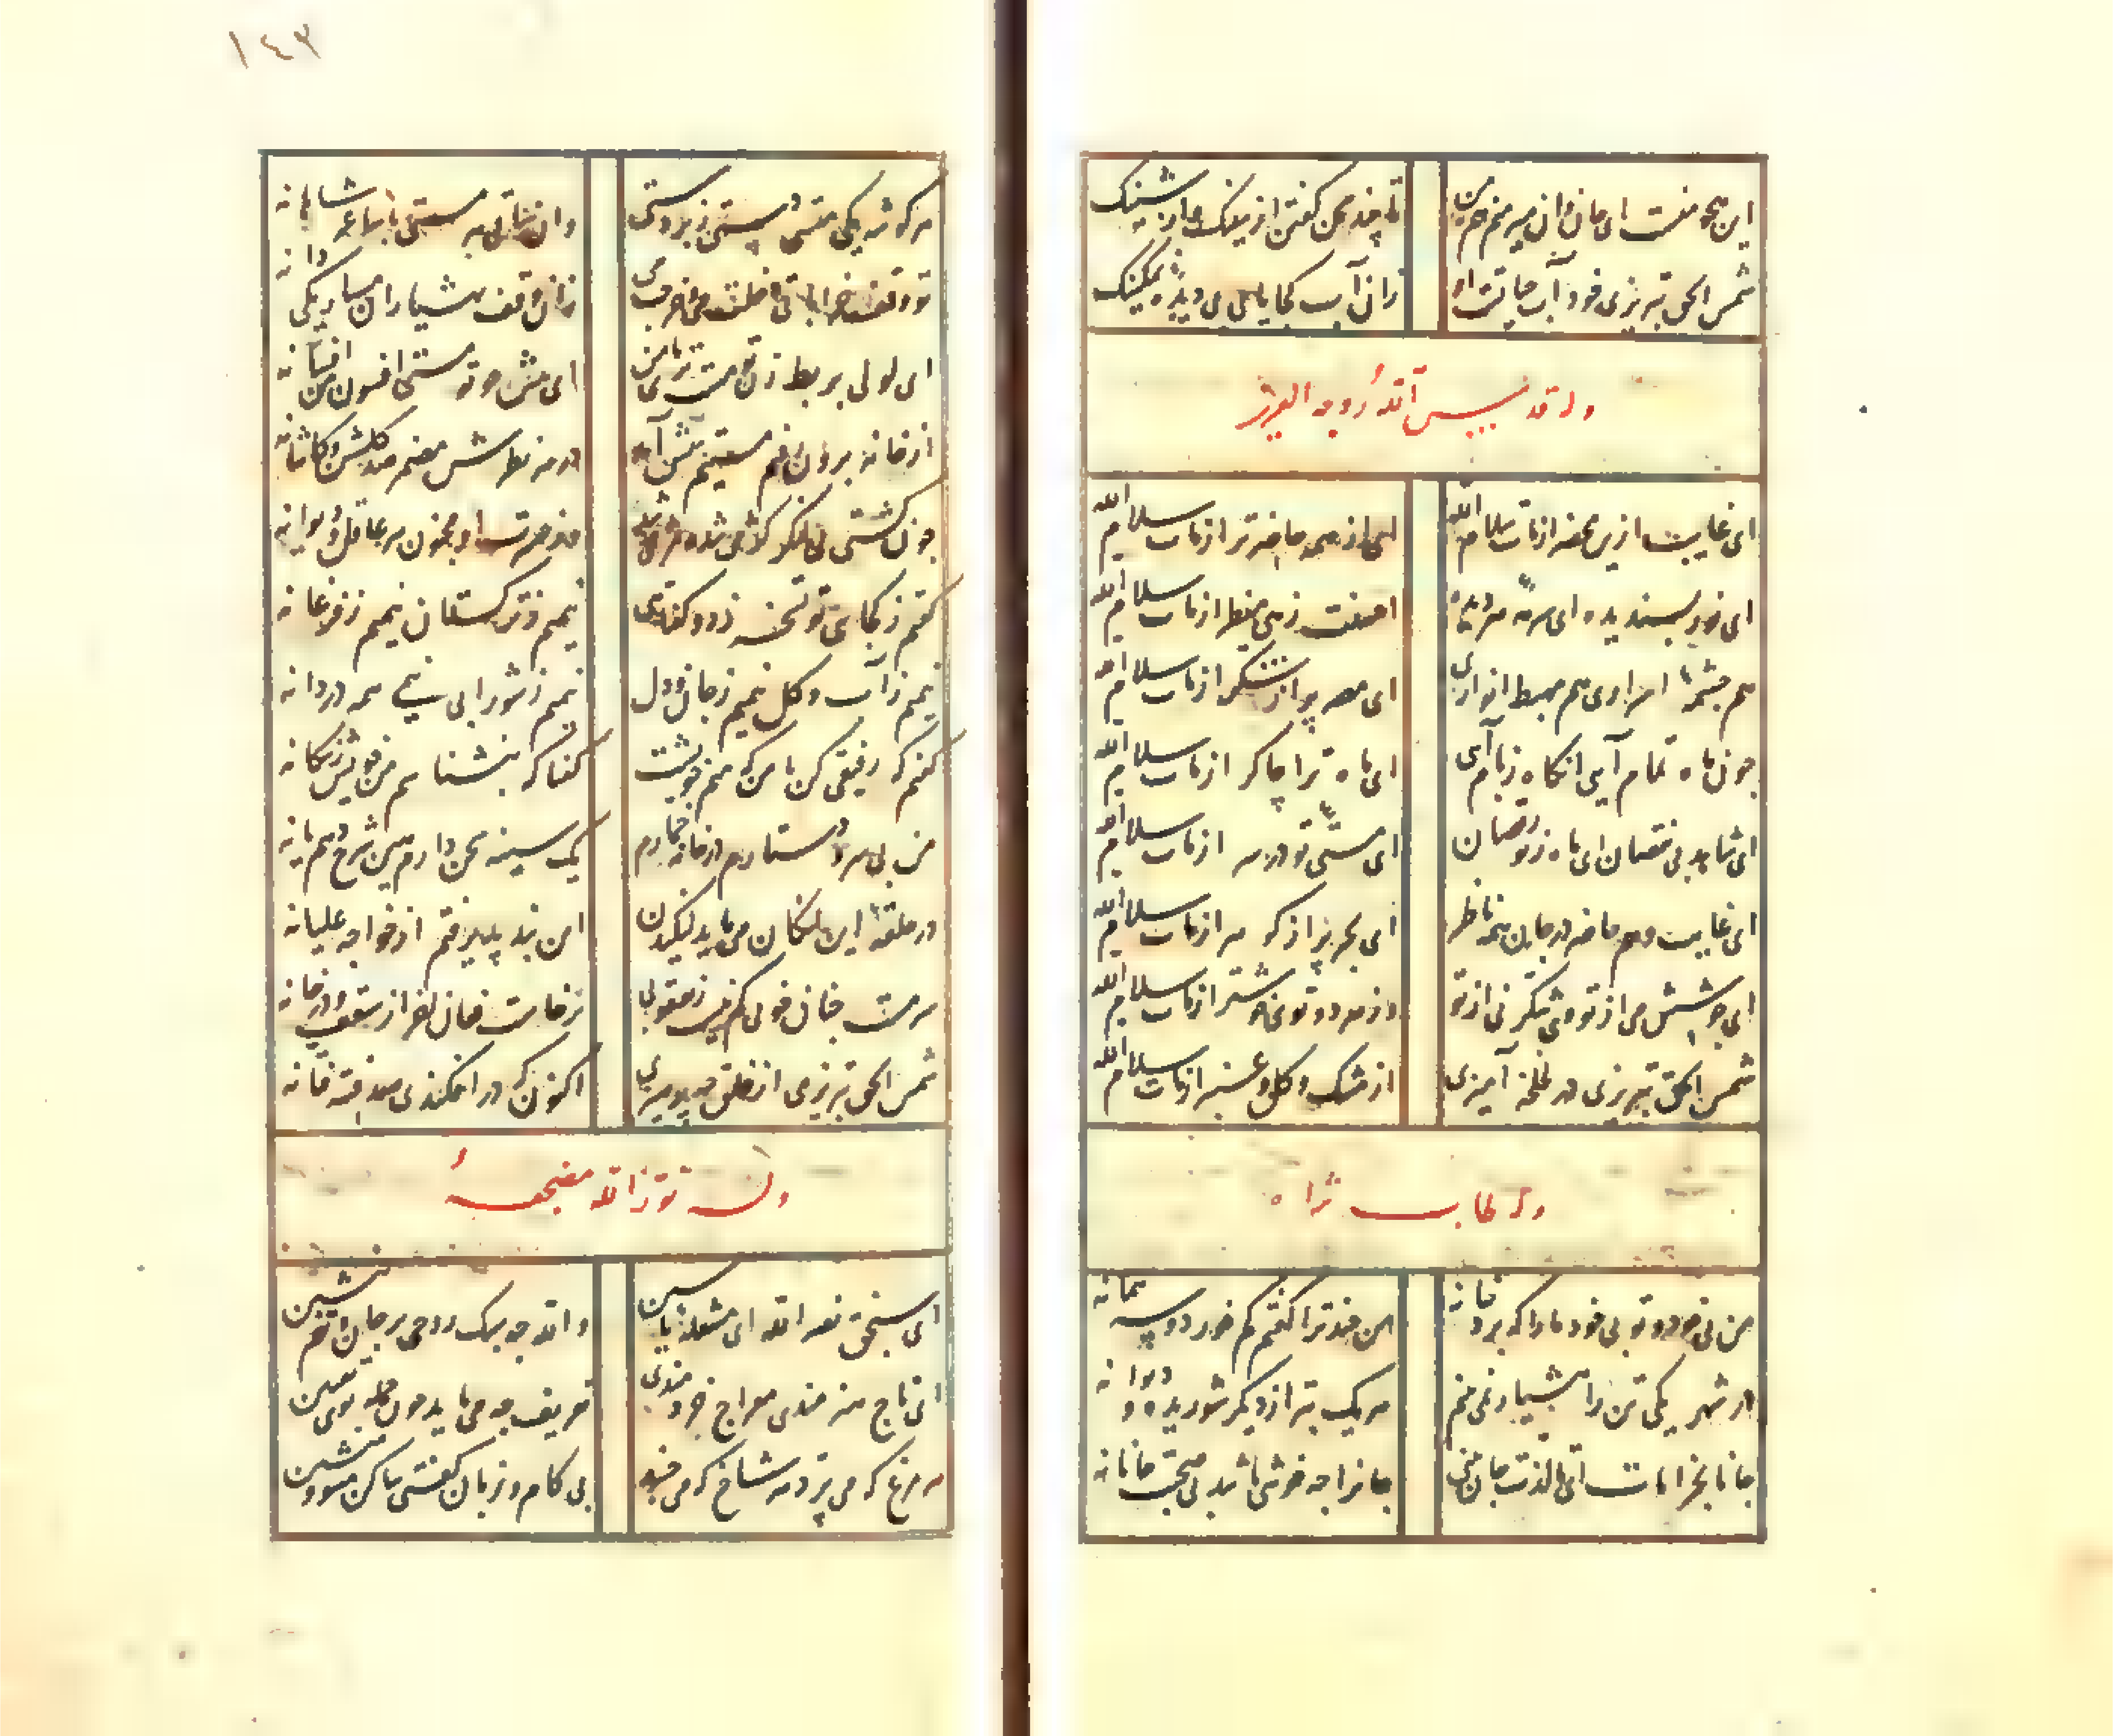 تا چند سخن گفتن از نیک
شمس الحق تبریزی خود آب حیاتست او زان آب کجا یابی
وله قدس الله روحه العزیز
ای غایب ازین محضر از مات سلام الله ای از همه حاضرتر از مات سلام الله
ای نور پسندیده ای سرمه هر دیده احسنت زهی منظر از مات سلام الله
هم چشمه اسراری هم مهبط انواری ای مصر پر از شکر از مات سلام الله
چون ماه تمام آیی انکاه ز بام آی ای ماه ترا چاکر از مات سلام الله
ای شاهد بی نقصان ای ماه ز تو رقصان ای مستی تو در سر از مات سلام الله
ای غایب و هم حاضر بر همه ناظر ای بحر پر از کوهر از مات سلام الله
ای جوشش می از تو وی شکر نی از تو وز هر دو تویی خوشتر از مات سلام الله
شمس الحق تبریزی در لخلخه آمیزی از مشک و کل و عنبر از مات سلام الله
وله طاب ثراه
من بی خود و تو بی خود ما را که برد خانه من چند ترا گفتم کم خور دو سه پیمانه
در شهر یکی تن را هشیار نمی بینم هر یک بتر از دیگر شوریده و دیوانه
جانا بخرابات آی تا لذت جان بینی جانرا چه خوشی باشد بی صحبت جانانه
١٤٣
هر کوشه یکی مستی دستی ز بر دستی وان ساقی هر مستی با ساغر شاهانه
تو وقف خراباتی خرجت می دخلت می زان وقف بهشیاران مسپار یکی دانه
ای لولی بربط زن تو مست تری یا من ای پیش چو تو مستی افسون من افسانه
از خانه برون رفتم مستیم پیش آمد در هر نظرش مضمر صد کلشن و کاشانه
چون کشتی بی لنکر کژ می شد و مژ می شد وز حسرت او مجنون هر عاقل و دیوانه
گفتم ز کجایی تو تسخر زد و گفتا نیمیم ز ترکستان نیمیم ز فرغانه
نیمیم ز آب و کل نیمیم ز جان و دل نیمیم ز شور ابی نیمی همه دردانه
گفتم که رفیقی کن با من که منم خویشت گفتا که بنشناسم من خویش ز بیکانه
من بی سر و دستارم در خانه خمارم یک سینه سخن دارم هین شرح دهم یا نه
در حلقه لنکان می باید لنکیدن این پند نپذیرفتم از خواجه علیانه
سرمست چنان خوبی کی کم بود از چوبی برخاست فغان اخر از ستون حنانه
شمس الحق تبریزی از خلق چه پرهیزی اکنون که در افکندی صد فتنه فتانه
وله نور الله مضجعه
ای سنجق نصر الله ای مشعله یاسین
ای تاج هنرمندی معراج خردمندی تعریف چه می باید
هر مرغ که می پرد هر شاخ که می بی کام و زبان گفتی